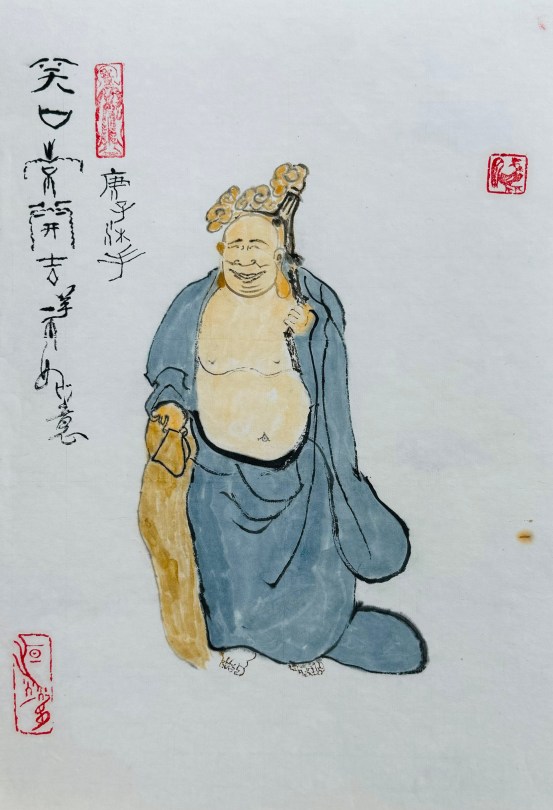 笑口常開吉祥如意
庚子沐手